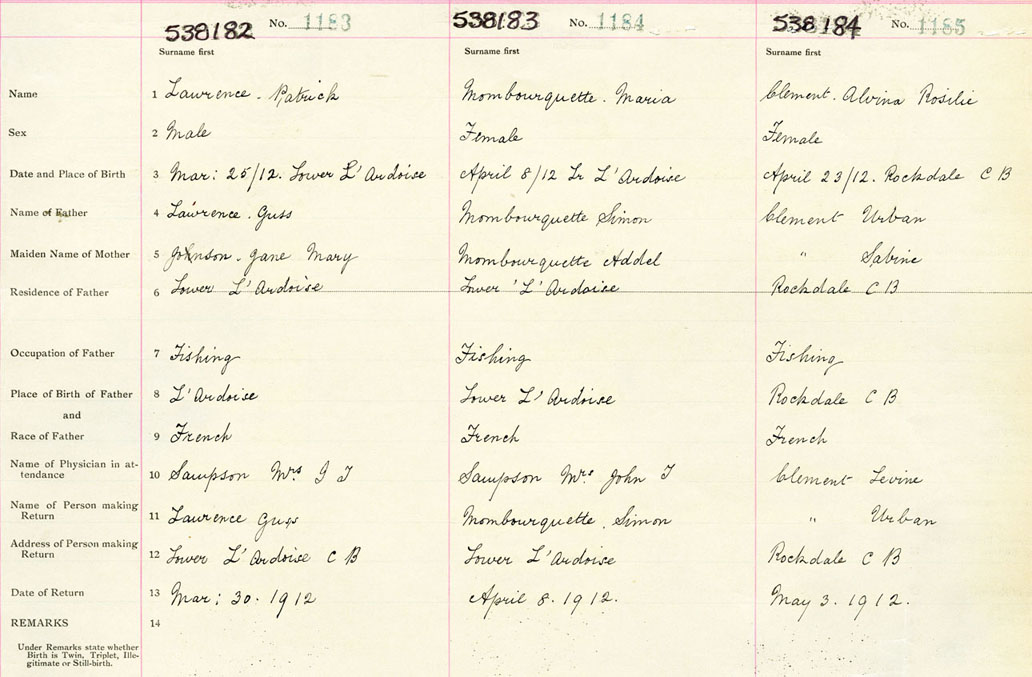 538182 No. 1183 538183 No. 1184 538184 No. 1185
Surname first Surname first Surname first
Name 1 Lawrence. Patrick Mombourquette. Maria Clement. Alvina Rosilie
Sex 2 Male Female Female
Date and Place of Birth 3 Mar: 25/12. Lower L'Ardoise April 8/12 Lr L'Ardoise April 23/12. Rockdale C B
Name of Father 4 Lawrence. Guss Mombourquette Simon Clement Urban
Maiden Name of Mother 5 Johnson. Jane Mary Mombourquette Addel " Sabine
Residence of Father 6 Lower L'Ardoise Lower 'L'Ardoise Rockdale C B
Occupation of Father 7 Fishing Fishing Fishing
Place of Birth of Father 8 L'Ardoise Lower L'Ardoise Rockdale C B
and
Race of Father 9 French French French
Name of Physician in at-
tendance 10 Sampson Mrs J T Sampson Mrs John T Clement Levine
Name of Person making
Return 11 Lawrence Guss Mombourquette. Simon " Urban
Address of Person making
Return 12 Lower L'Ardoise C B Lower L'Ardoise Rockdale C B
Date of Return 13 Mar: 30. 1912 April 8. 1912. May 3. 1912.
REMARKS 14
Under Remarks state whether
Birth is Twin, Triplet, Ille-
gitimate or Still-birth.